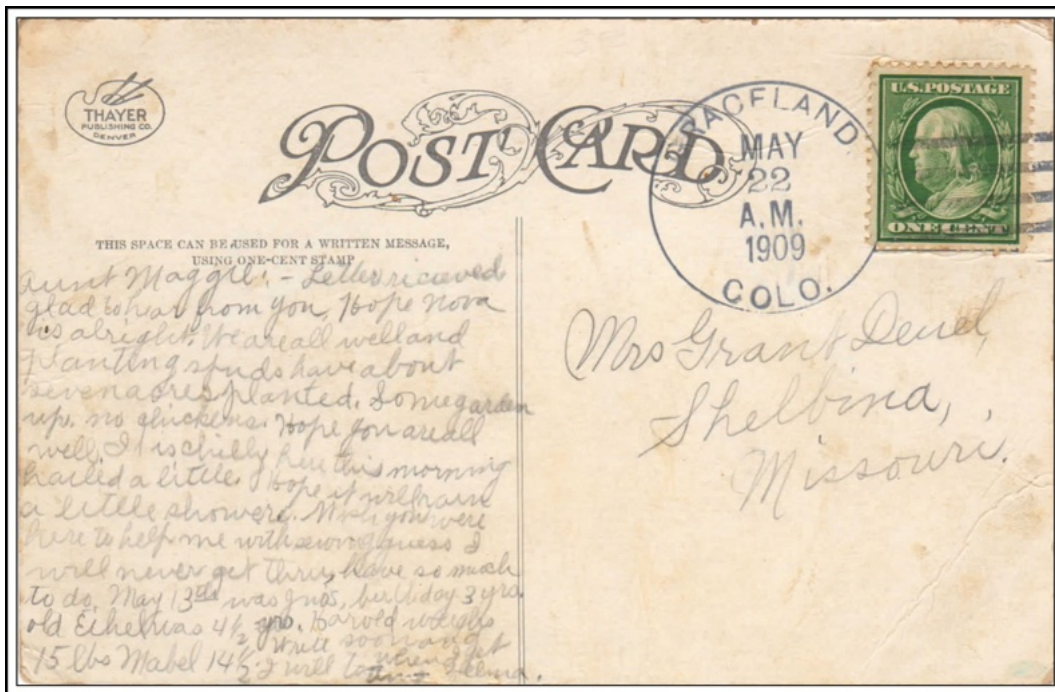 THAYER
PUBLISHING CO.
DENVER
POST CARD
GRACELAND
MAY
22
A.M.
1909
COLO.
U.S. POSTAGE
ONE CENT
THIS SPACE CAN BE USED FOR A WRITTEN MESSAGE,
USING ONE-CENT STAMP
Aunt Maggie: - Letter recieved
glad to hear from you, Hope Nova
is alright. We are all well and
planting spuds have about
seven acres planted. Some garden
up. no chickens. Hope you are all
well. It is chilly here this morning
hailed a little. Hope it will rain
a little shower. Wish you were
here to help me with sewing guess I
will never get thru, have so much
to do. May 13th was birthday 3 yrs.
old Ethel was 4½ yrs. Harold weighs
15 lbs Mabel 14½ Write soon and
I will
Mrs Grant Deuel,
Shelbina,
Missouri.